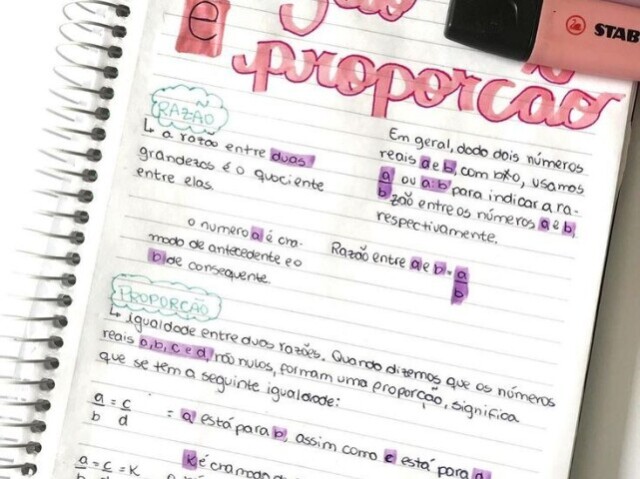 e
proporcão
STAB
RAZÃO
↳ a razão entre duas
grandezas é o quociente
entre elas.
Em geral, dado dois números
reais a e b, com b≠0, usamos
a/b ou a:b para indicar a ra-
zão entre os números a e b,
respectivamente.
o numero a é cha-
mado de antecedente e o
b de consequente.
Razão entre a e b = a/b
PROPORCÃO
↳ igualdade entre duas razões. Quando dizemos que os números
reais a, b, c e d, não nulos, formam uma proporção, significa
que se têm a seguinte igualdade:
a/b = c/d = a está para b, assim como c está para
a = c = K
K é chamado